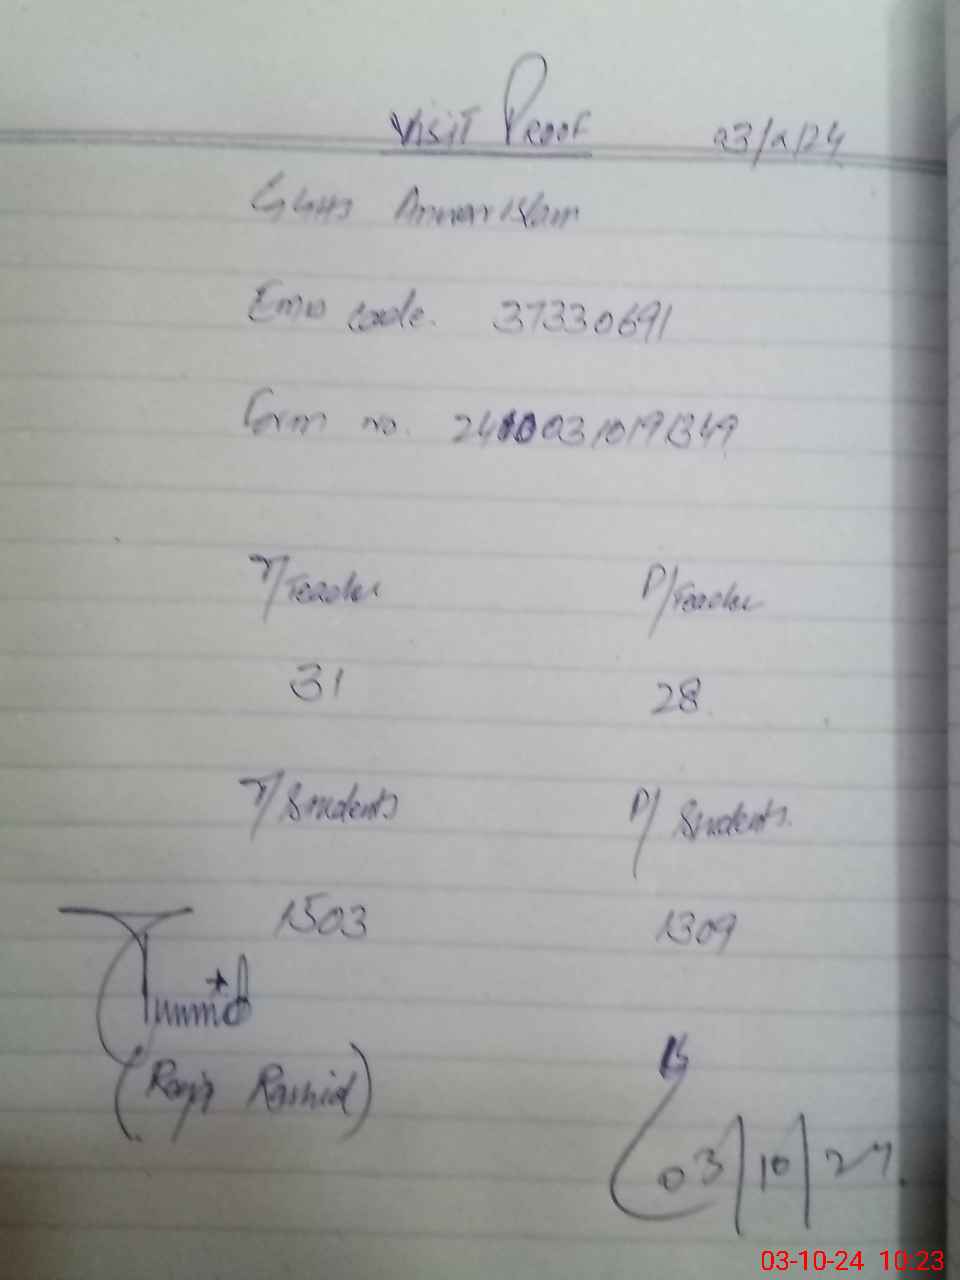 Visit Proof 03/10/24
GGHS Anwar Islam
Emis code. 37330691
Form no. 24100310191349
T/Teacher P/Teacher
31 28
T/Students P/Students
1503 1309
(Rashid)
03/10/24
03-10-24 10:23